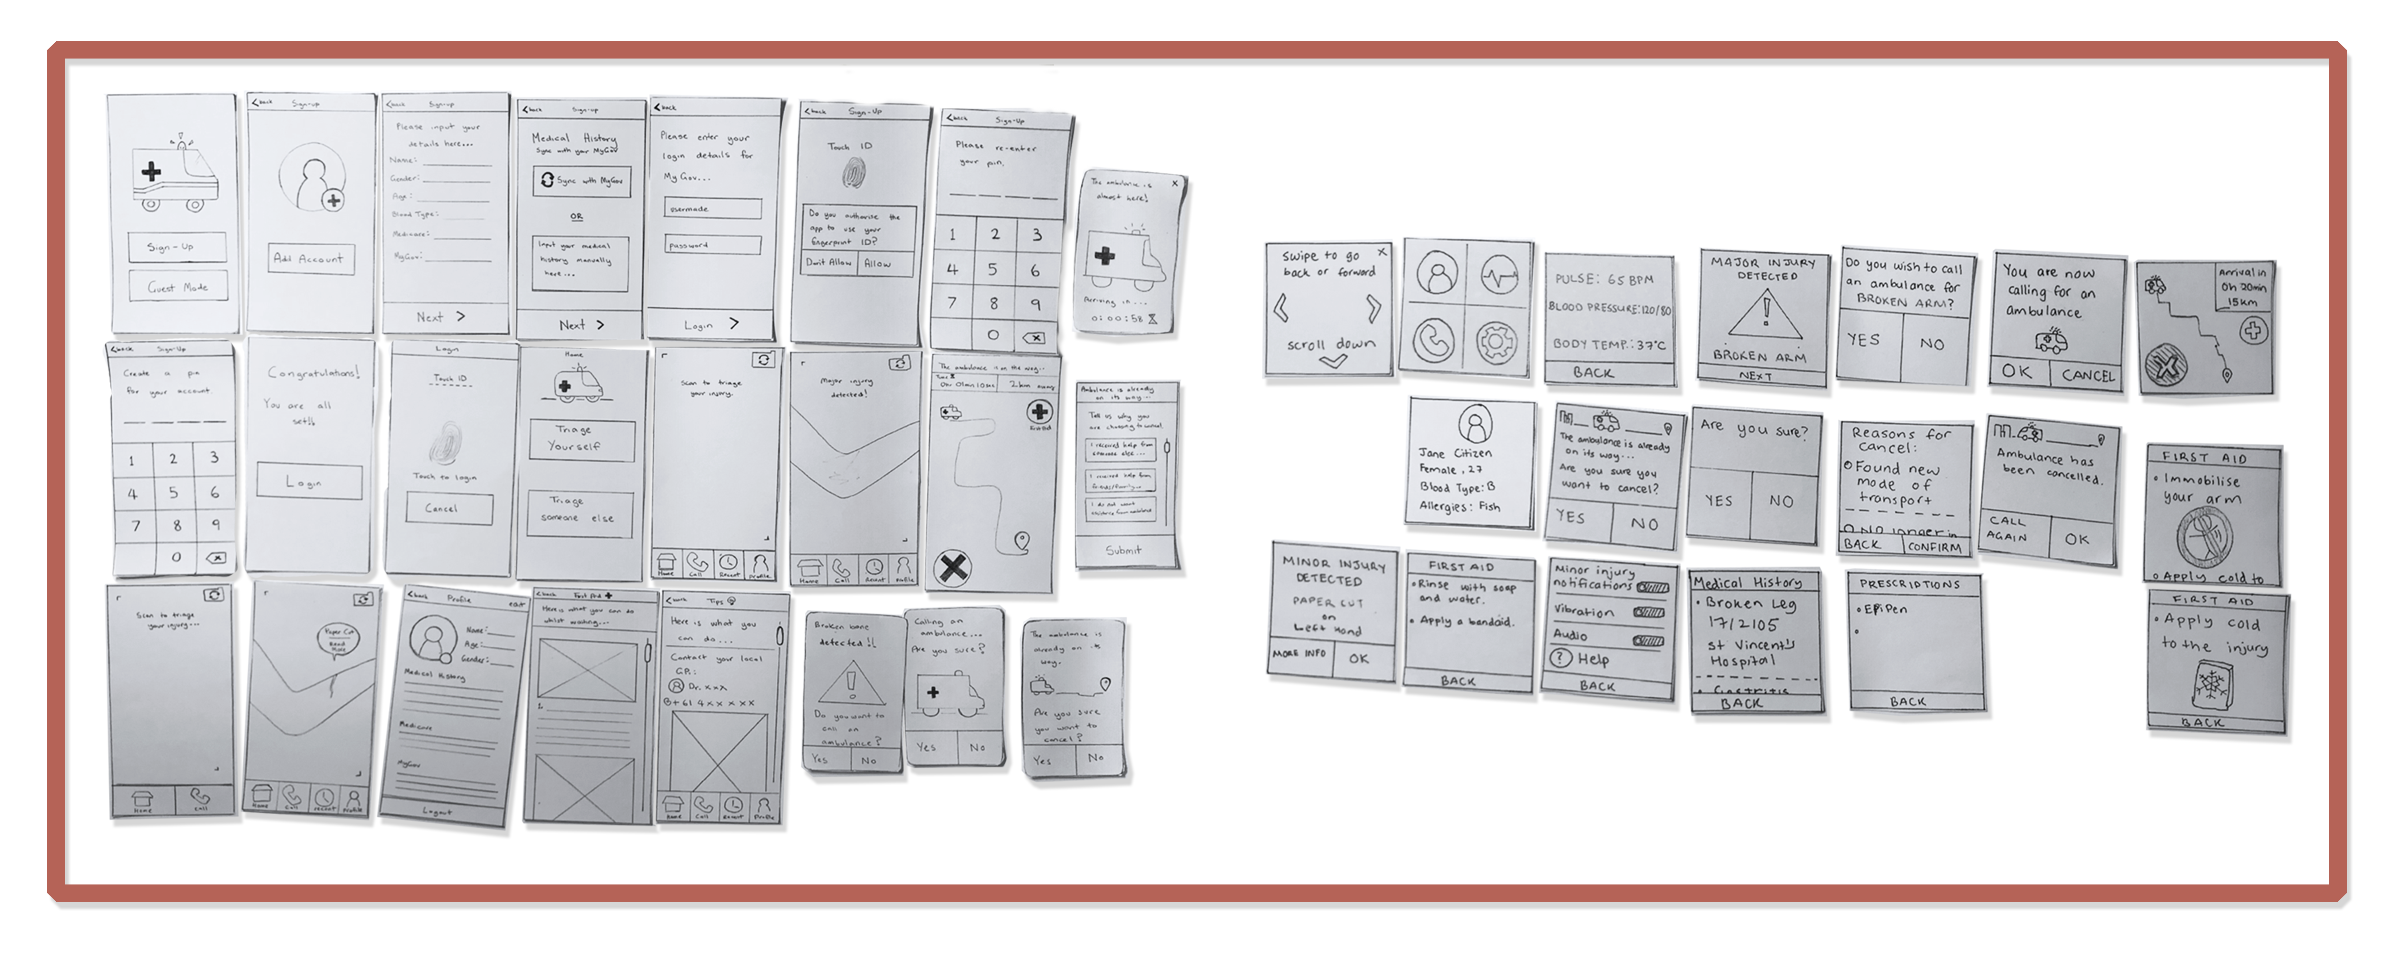 Sign-Up
Guest Mode
<back Sign-up
Add Account
<back Sign-up
Please input your
details here...
Name:
Gender:
Age:
Blood Type:
Medicare:
MyGov:
Next >
<back Sign-up
Medical History
Sync with your MyGov
Sync with MyGov
OR
Input your medical
history manually
here...
Next >
<back
Please enter your
login details for
My Gov...
password
Login >
<back Sign-Up
Touch ID
Do you authorise the
app to use your
fingerprint ID?
Don't Allow Allow
<back Sign-Up
Please re-enter
your pin.
1 2 3
4 5 6
7 8 9
0
The ambulance is X
almost here!
Arriving in...
0:00:58
<back Sign-Up
Create a pin
for your account.
1 2 3
4 5 6
7 8 9
0
Congratulations!
You are all
set!!
Login
Login
Touch ID
Touch to login
Cancel
Home
Triage
Yourself
Triage
someone else
Scan to triage
your injury.
Home Call Recent Profile
Major injury
detected!
Home Call Recent Profile
The ambulance is on the way..
0hr 01min 10sec 2km away
First Aid
Ambulance is already
on its way...
Tell us why you
are choosing to cancel.
I received help from
someone else...
I received help from
friends/family...
I do not want
Submit
Scan to triage
your injury...
Home Call
Paper Cut
Read
More
Home Call recent profile
<back Profile edit
Name:
Age:
Gender:
Medical History
Medicare
MyGov
Logout
<back First Aid
Here is what you can do
whilst waiting...
1.
<back Tips
Here is what you
can do...
Contact your local
G.P.:
Dr. xxx
+61 4xxxxxx
Home Call Recent Profile
Broken bone
detected!!
Do you want to
call an
ambulance?
Yes No
Calling an
ambulance...
Are you sure?
Yes No
The ambulance is
already on its
way.
Are you sure
you want to
cancel?
Yes No
Swipe to go X
back or forward
scroll down
PULSE: 65 BPM
BLOOD PRESSURE:120/80
BODY TEMP.: 37°C
BACK
MAJOR INJURY
DETECTED
!
BROKEN ARM
NEXT
Do you wish to call
an ambulance for
BROKEN ARM?
YES NO
You are now
calling for an
ambulance
OK CANCEL
Arrival in
0h 20min
15km
Jane Citizen
Female, 27
Blood Type: B
Allergies: Fish
The ambulance is already
on its way...
Are you sure you
want to cancel?
YES NO
Are you sure?
YES NO
Reasons for
Cancel:
Found new
mode of
transport
No longer in
BACK CONFIRM
Ambulance has
been cancelled.
CALL
AGAIN
OK
FIRST AID
• Immobilise
your arm
• Apply cold to
MINOR INJURY
DETECTED
PAPER CUT
on
Left Hand
MORE INFO OK
FIRST AID
• Rinse with soap
and water.
• Apply a bandaid.
BACK
Minor injury
notifications
Vibration
Audio
? Help
BACK
Medical History
• Broken Leg
17/2105
St Vincent's
Hospital
• Gastritis
BACK
PRESCRIPTIONS
• EpiPen
•
BACK
FIRST AID
• Apply cold
to the injury
BACK